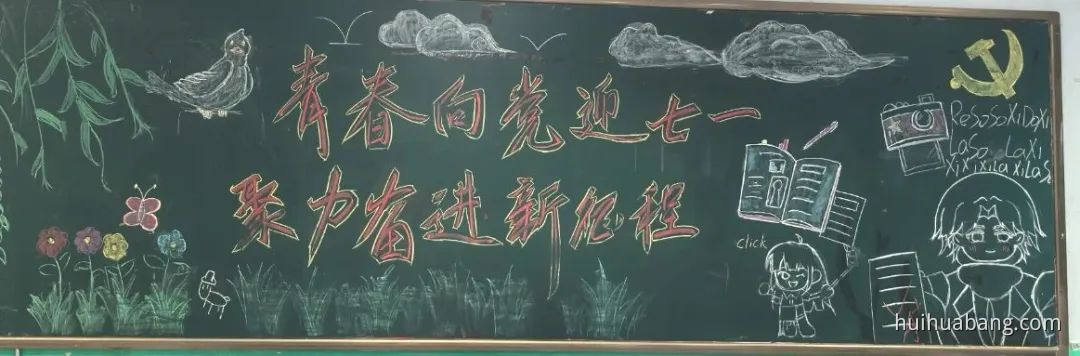 青春向党迎七一
聚力奋进新征程
click
ReSoSoXiDoXi
LaSo LaXi
XiXiXiLaXiLaS
huihuabang.com